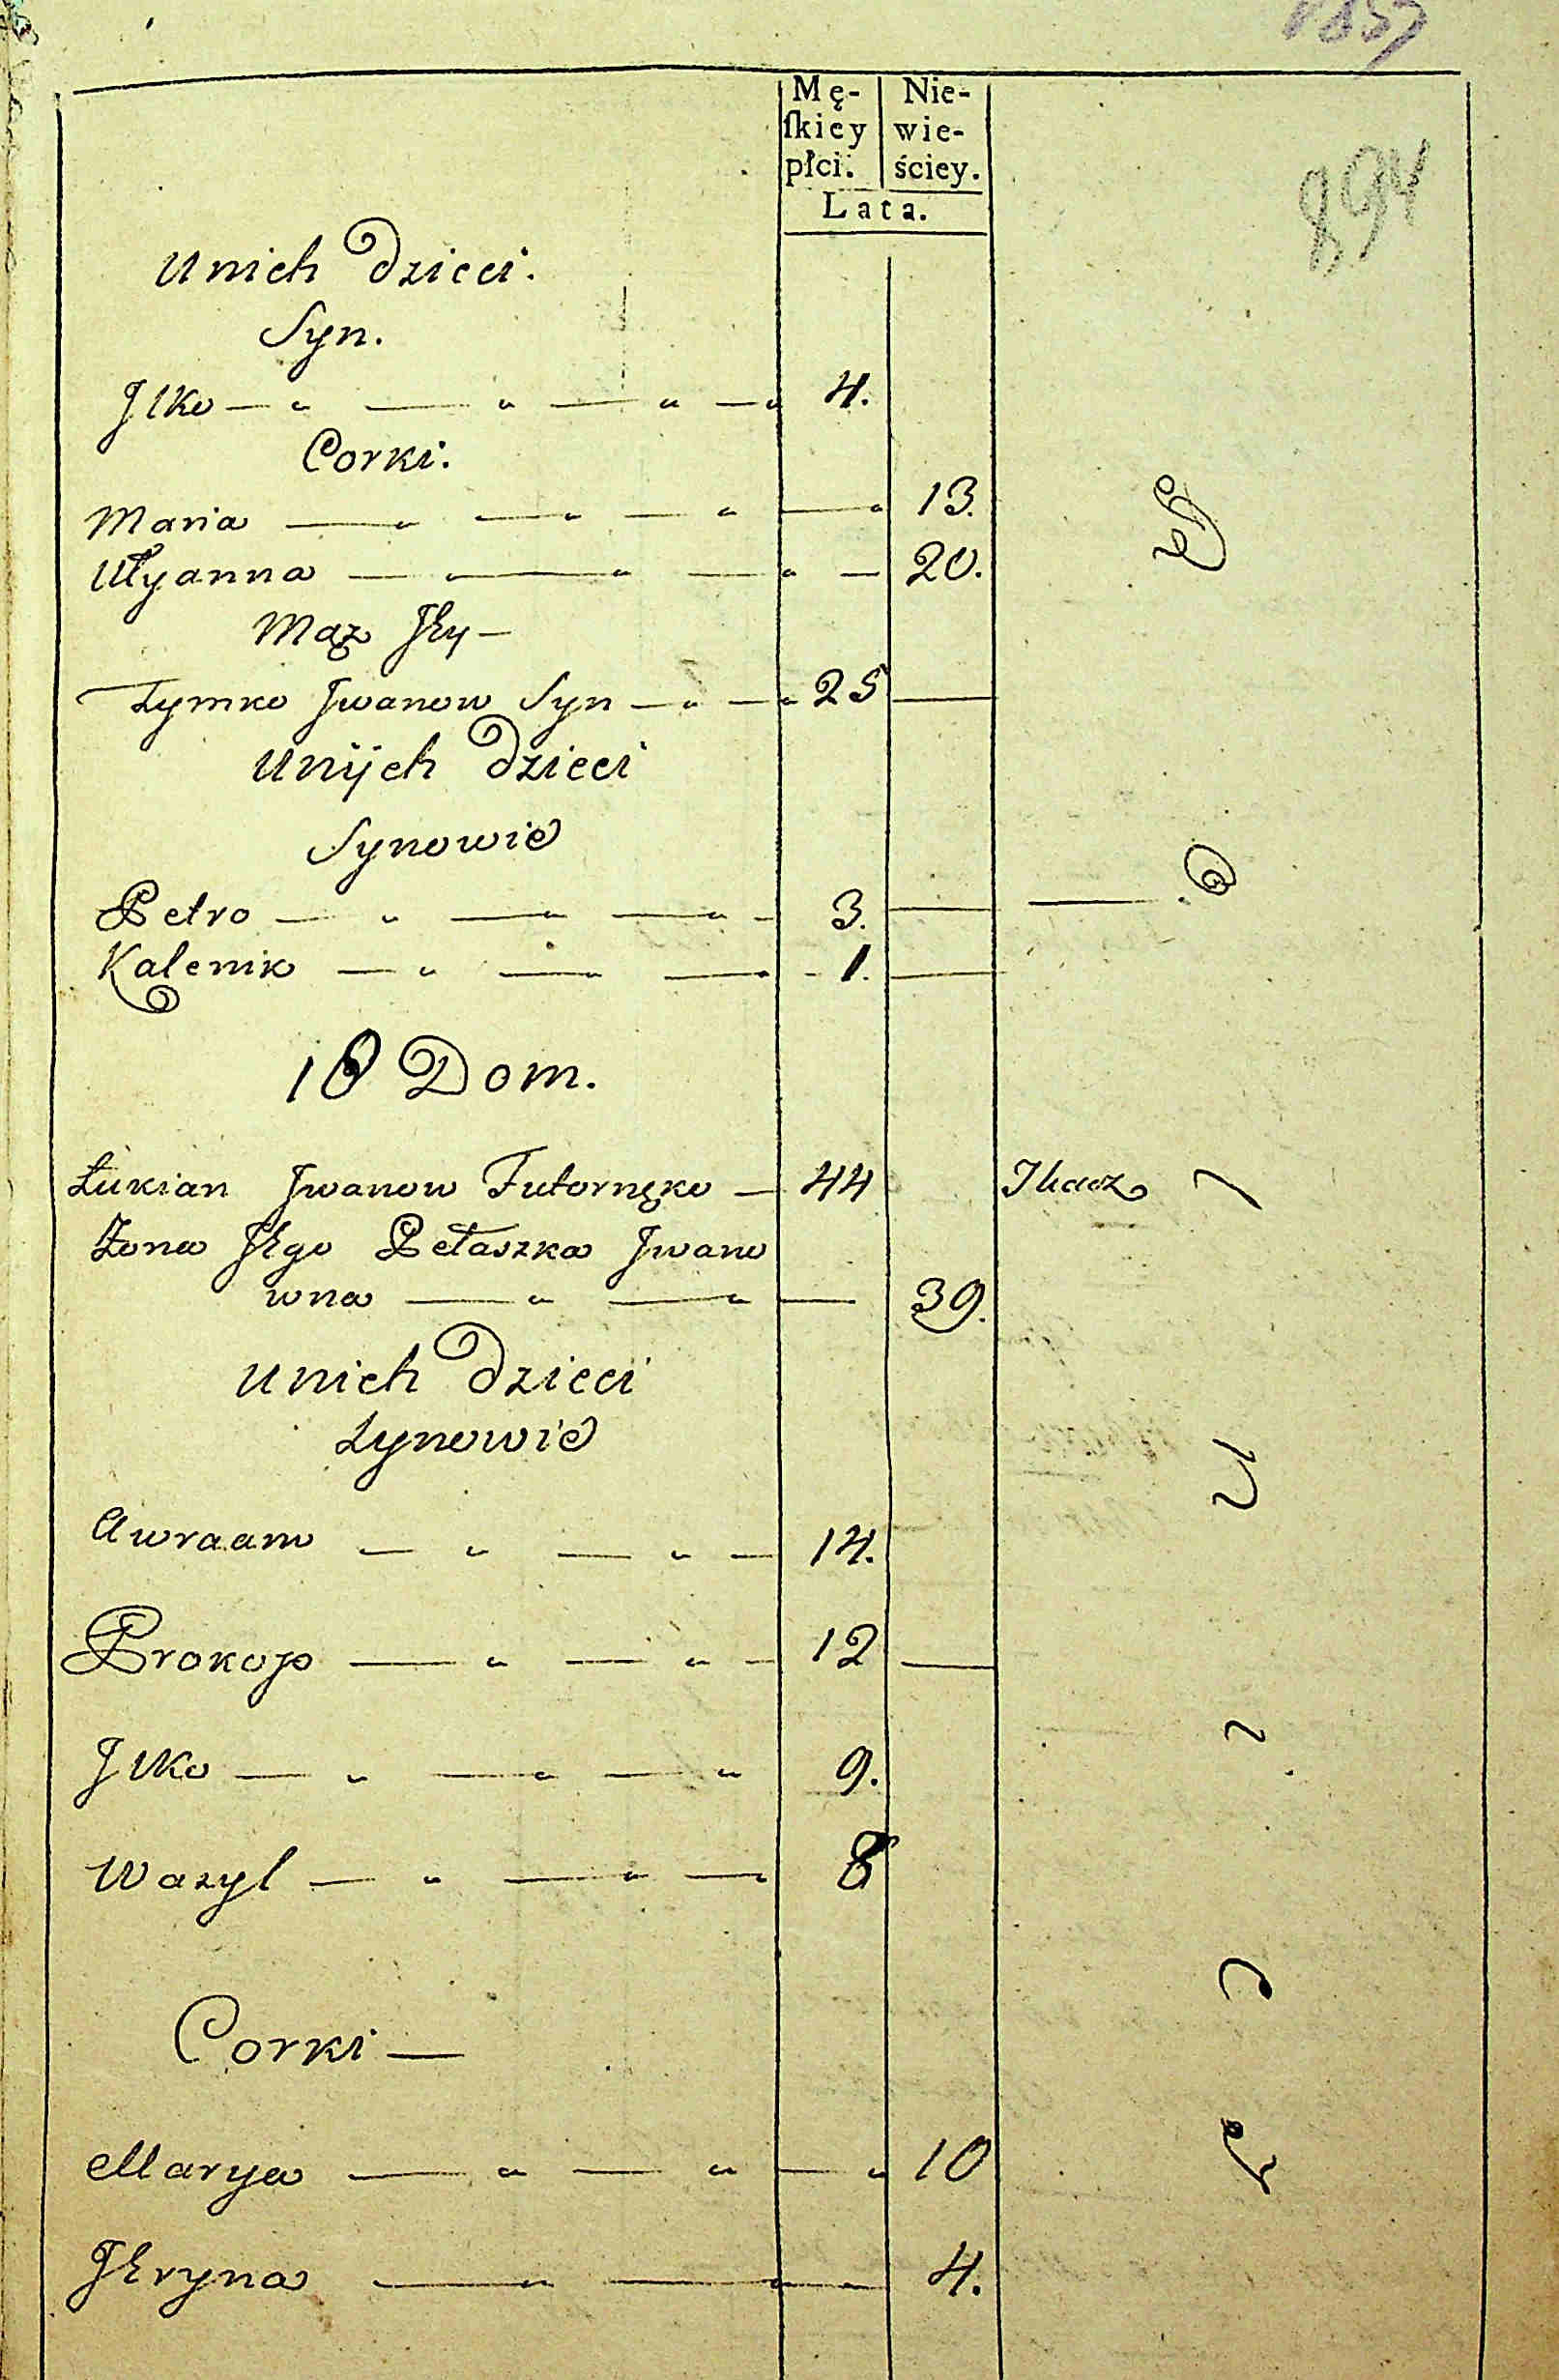 1857
Mę- Nie-
skiey wie-
płci. ściey.
Lata.
894
Unich Dzieci.
Syn.
Jlko 4.
Corki.
Maria 13.
Ułyanna 20.
Mąz Jey
Tymko Jwanow Syn 25
Unijch Dzieci
Synowie
Petro 3.
Kalenik 1.
18 Dom.
Łukian Jwanow Futornęko 44 Tkacz
Zona Jego Pełaszka Jwano
wna 39.
Unich Dzieci
Synowie
Awraam 14.
Prokop 12
Jlko 9.
Wasyl 8
Corki
Marya 10
Jeryna 4.